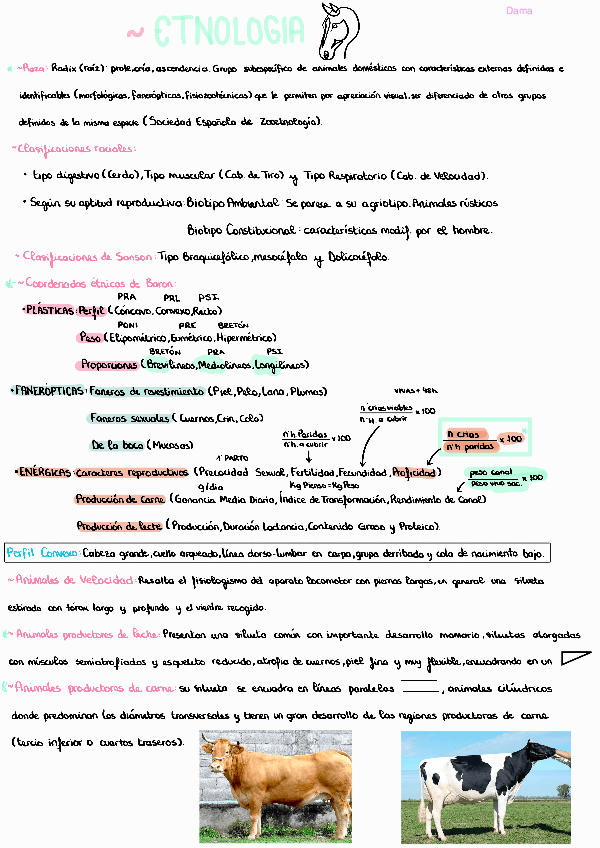 Dama
~ ETNOLOGIA
~Raza: Radix (raíz): prole, cría, ascendencia. Grupo subespecífico de animales domésticos con características externas definidas e
identificables (morfológicas, fanerópticas, fisiozootécnicas) que le permiten por apreciación visual, ser diferenciado de otros grupos
definidos de la misma especie (Sociedad Española de Zooetnología).
~Clasificaciones raciales:
• Tipo digestivo (Cerdo), Tipo Muscular (Cab. de Tiro) y Tipo Respiratorio (Cab. de Velocidad).
• Según su aptitud reproductiva: Biotipo Ambiental: Se parece a su agriotipo. Animales rústicos
Biotipo Constitucional: características modif. por el hombre.
~ Clasificaciones de Sanson: Tipo Braquicefálico, mesocéfalo y Dolicocéfalo.
~Coordenadas étnicas de Baron:
PRA PRL PSI
• PLÁSTICAS: Perfil (Cóncavo, Convexo, Recto)
PONI PRE BRETÓN
Peso (Elipométrico, Eumétrico, Hipermétrico)
BRETÓN PRA PSI
Proporciones (Brevilíneos, Mediolíneos, Longilíneos)
• FANERÓPTICAS: Faneros de revestimiento (Piel, Pelo, Lana, Plumas)
vivas + 48h
Faneros sexuales (Cuernos, Crin, Cola)
nº crías viables / nº h. a cubrir x 100
De la boca (Mucosas)
nº h. Paridas / nº h. a cubrir x 100
n crías / nº paridas x 100
1º PARTO
• ENÉRGICAS: Caracteres reproductivos (Precocidad Sexual, Fertilidad, Fecundidad, Prolificidad)
g/día Kg Pienso = Kg Peso
peso canal / peso vivo sac. x 100
Producción de Carne (Ganancia Media Diaria, Índice de Transformación, Rendimiento de Canal)
Producción de leche (Producción, Duración Lactancia, Contenido Graso y Proteico).
Perfil Convexo: Cabeza grande, cuello arqueado, línea dorso-lumbar en carpa, grupa derribada y cola de nacimiento bajo.
~ Animales de Velocidad: Resalta el fisiologismo del aparato locomotor con piernas largas, en general una silueta
estirada con tórax largo y profundo y el vientre recogido.
~ Animales productores de leche: Presentan una silueta común con importante desarrollo mamario, siluetas alargadas
con músculos semiatrofiados y esqueleto reducido, atrofia de cuernos, piel fina y muy flexible, encuadrando en un
~ Animales productores de carne: su silueta se encuadra en líneas paralelas , animales cilíndricos
donde predominan los diámetros transversales y tienen un gran desarrollo de las regiones productoras de carne
(tercio inferior o cuartos traseros).